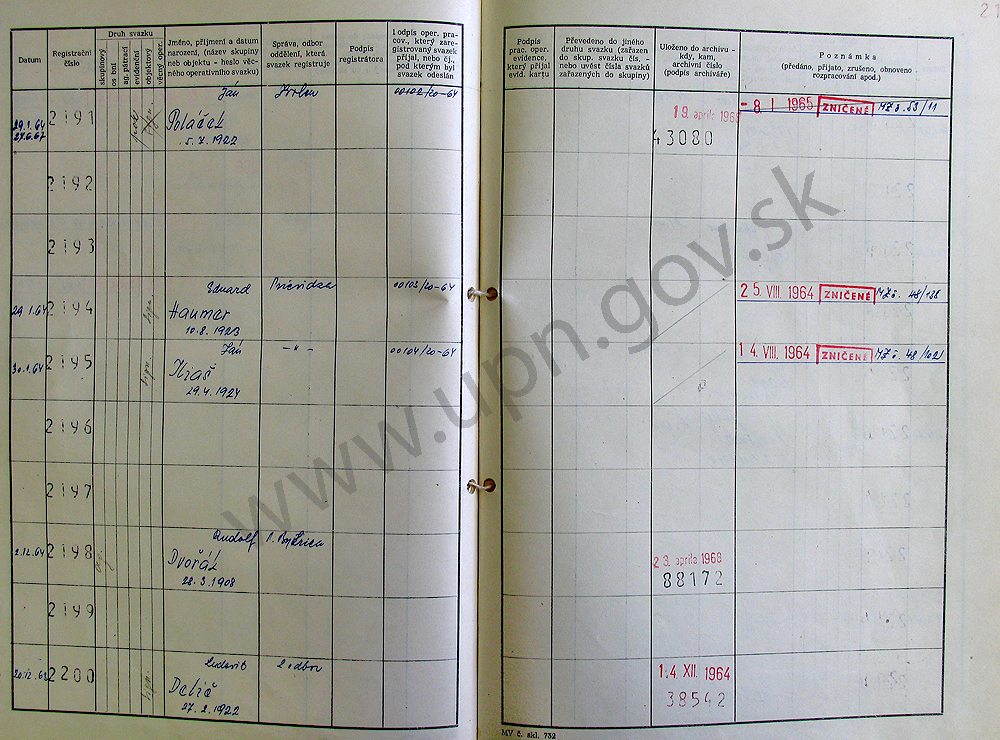 Datum
Registrační číslo
Druh svazku
skupinový
osobní
ag. pátrací
evidenční
objektový
věcný oper.
Jméno, příjmení a datum
narození, (název skupiny
neb objektu - heslo věc-
ného operativního svazku)
Správa, odbor
oddělení, která
svazek registruje
Podpis
registrátora
Podpis oper. prac-
cov., který zare-
gistrovaný svazek
přijal, nebo čj.,
pod kterým byl
svazek odeslán
Podpis
prac. oper.
evidence,
který přijal
evid. kartu
Převedeno do jiného
druhu svazku (zařazen
do skup. svazku čís. -
nebo uvést čísla svazků
zařazených do skupiny)
Uloženo do archivu -
kdy, kam,
archivní číslo
(podpis archiváře)
Poznámka
(předáno, přijato, zrušeno, obnoveno
rozpracování apod.)
29.1.64
27.6.67
2191
Ján
Poláček
5.7.1922
00102/20-64
19. apríla 1968
43080
- 8 I 1965 ZNIČENÉ MZ č. 53/11
2192
2193
29.1.64
2194
Eduard
Haumer
10.8.1923
Prievidza
00103/20-64
25. VIII. 1964 ZNIČENÉ MZ č. 48/136
30.1.64
2195
Ján
Iliaš
29.4.1924
-"-
00104/20-64
14. VIII. 1964 ZNIČENÉ MZ č. 48/1021
2196
2197
2.12.64
2198
Rudolf
Dvořák
28.3.1908
P. Bystrica
23. apríla 1968
88172
2199
20.12.63
2200
Ludovít
Delič
27.2.1922
2. odbor
14. XII. 1964
38542
MV č. skl. 732
www.upn.gov.sk